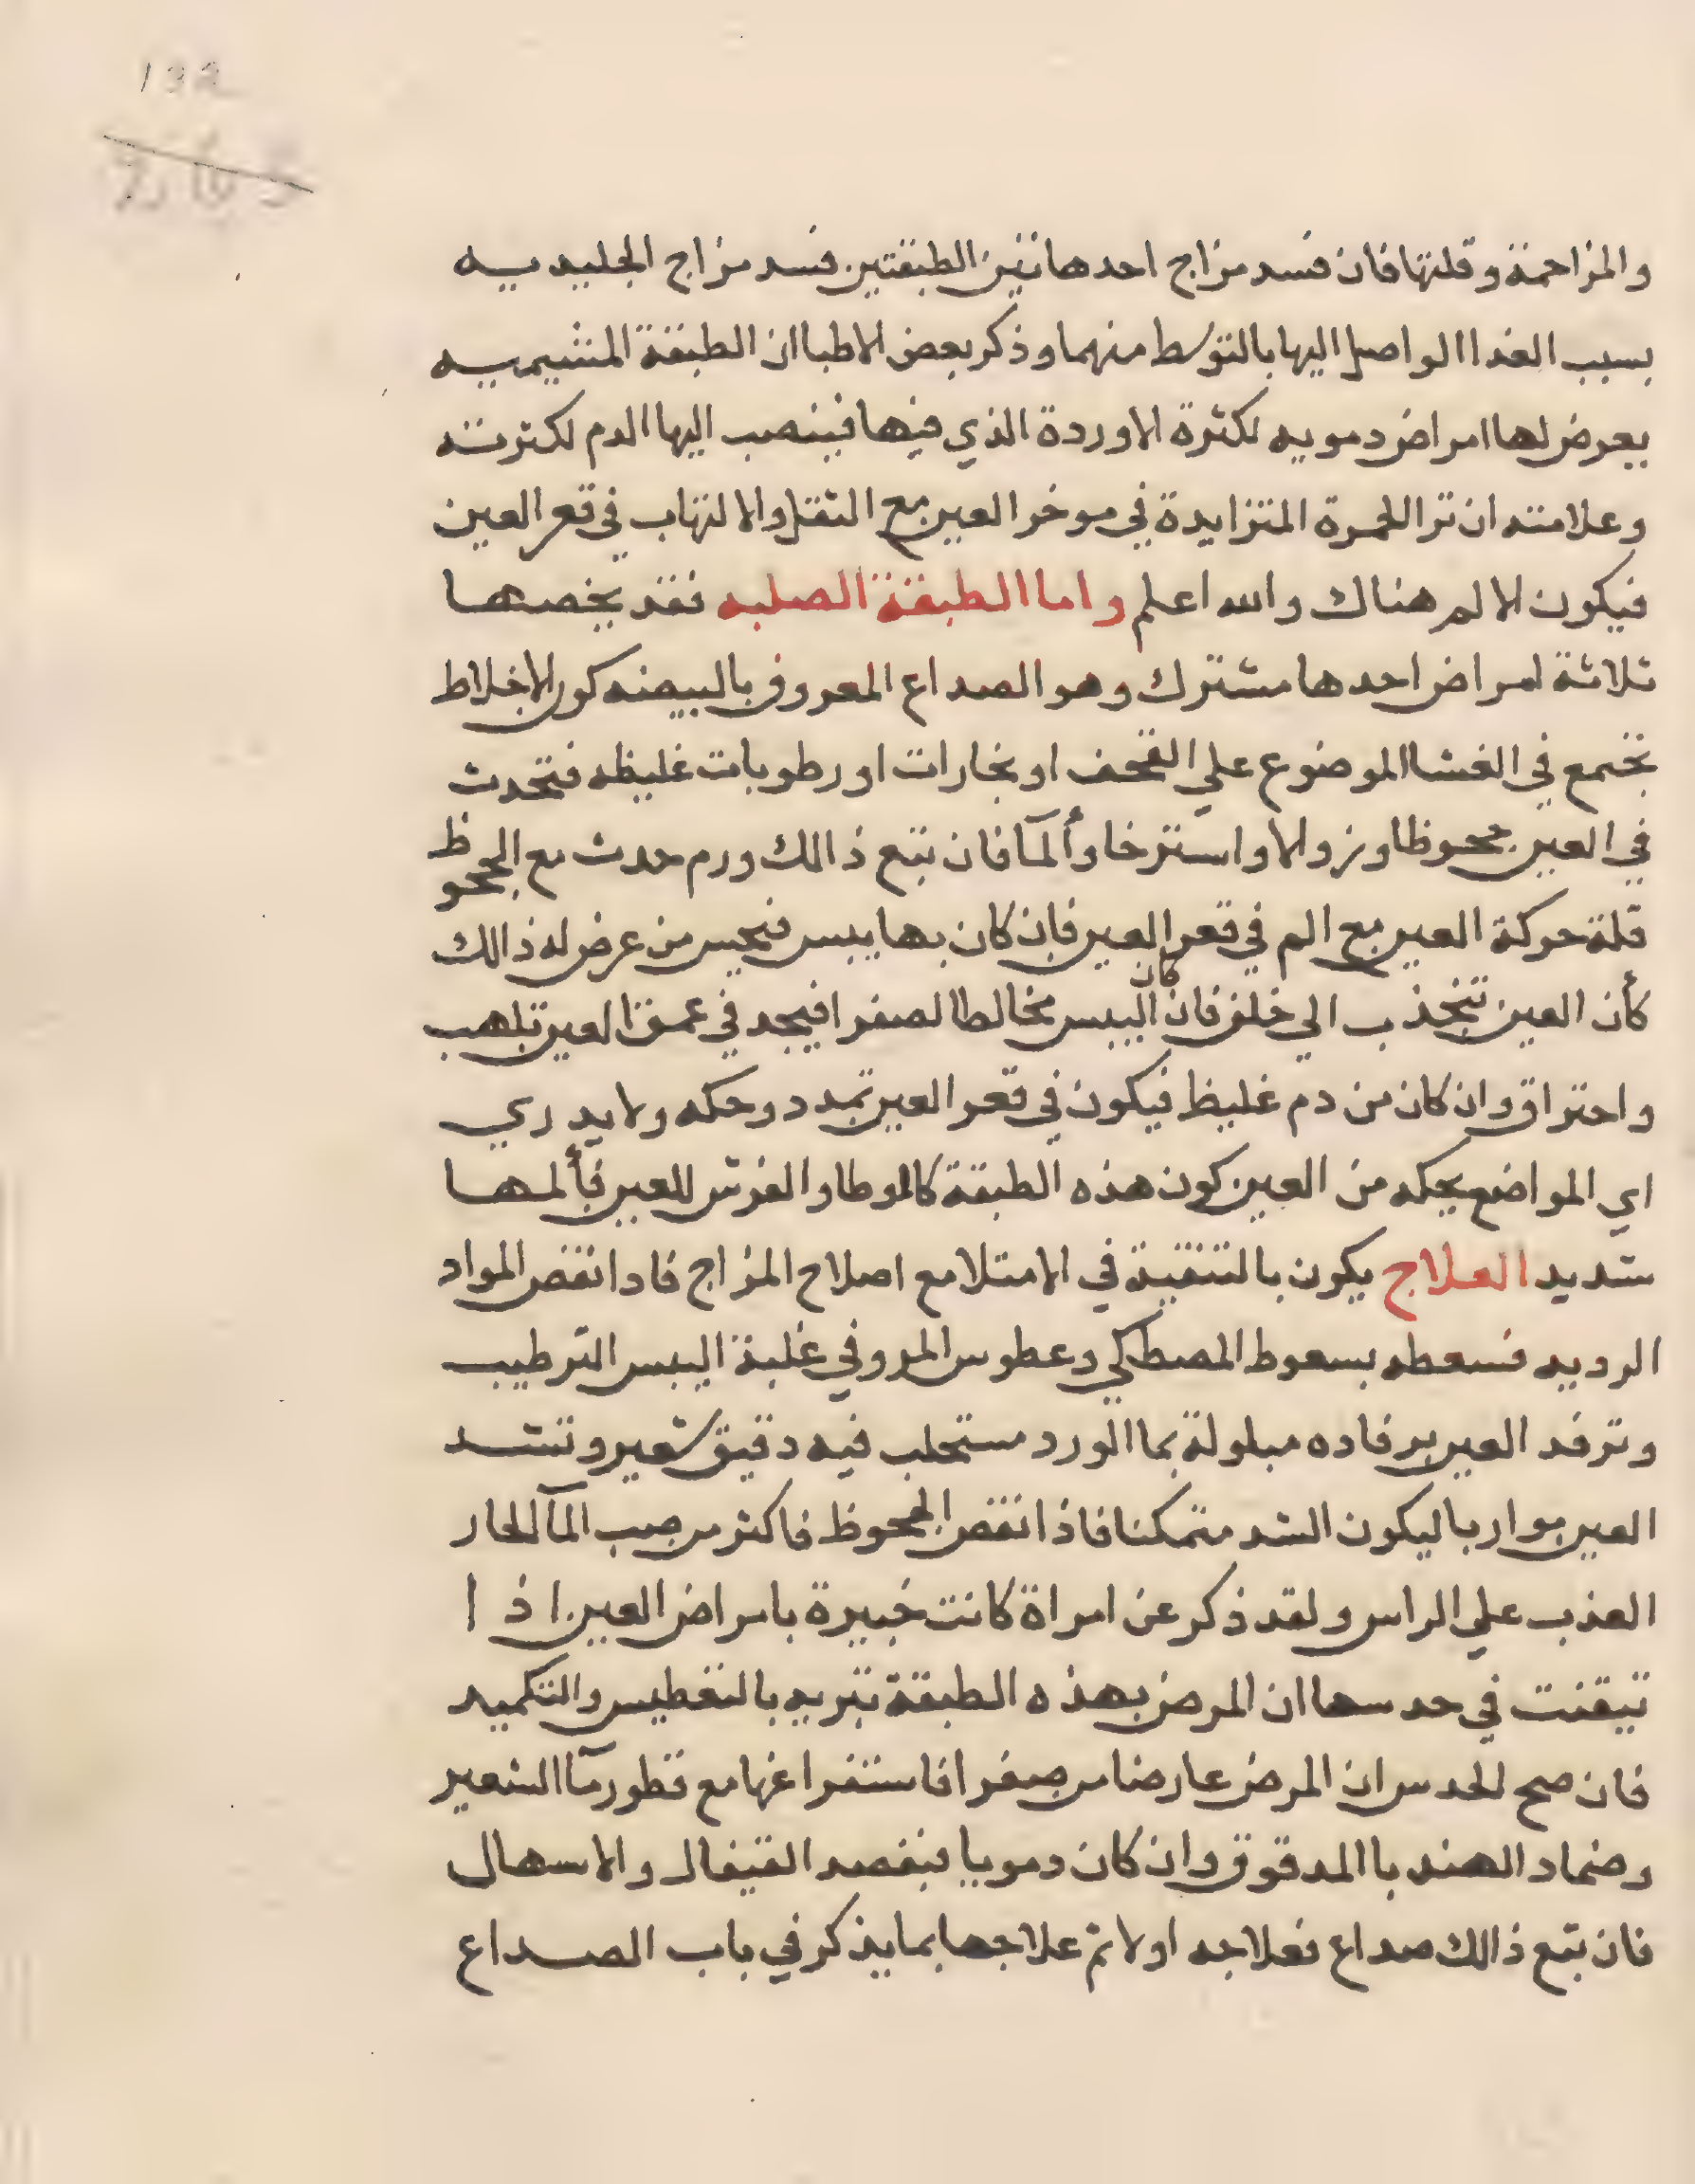 132
والمزاحمة وقلتها فان فسد مزاج احد هاتين الطبقتين فسد مزاج الجليديه
بسبب الغدا الواصل اليها بالتوسط منهما وذكر بعض الاطبا ان الطبقة المشيميه
يعرض لها امراض دمويه لكثرة الاوردة الذي فيها فينصب اليها الدم لكثرته
وعلامته ان ترا الحمرة المتزايدة في موخر العين مع الثقل والالتهاب في قعر العين
فيكون الالم هناك والله اعلم واما الطبقة الصلبه فقد يخصها
ثلاثة امراض احدها مشترك وهو الصداع المعروف بالبيضه كون الاخلاط
تجتمع في الغشا الموضوع علي القحف او بخارات او رطوبات غليظه فتحدث
في العين جحوظا ونزولا واسترخا وألمًا فان تبع ذالك ورم حدث مع الجحوظ
قلة حركة العين مع الم في قعر العين فان كان بها يبس فيحس من عرض له ذالك
كأن العين تنجذب الي خلف فان كان اليبس مخالطا لصفرا فيجد في عمق العين تلهب
واحتراق وان كان من دم غليظ فيكون في قعر العين تمدد وحكه ولا يدري
اي المواضع يحكه من العين كون هذه الطبقة كالموطا والفرش للعين فألمها
شديد العلاج يكون بالتنقية في الامتلا مع اصلاح المزاج فادا نقص المواد
الرديه فسعطه بسعوط المصطكي وعطوس المر وفي غلبة اليبس الترطيب
وترفد العين برفاده مبلولة بما الورد مستحلب فيه دقيق شعير وتشد
العين مواربا ليكون الشد متمكنا فاذا نقص الجحوظ فاكثر من صب المآ الحار
العذب علي الراس ولقد ذكر عن امراة كانت خبيرة بامراض العين اذا
تيقنت في حدسها ان المرض بهذه الطبقة تبريه بالتغطيس والتكميد
فان صح الحدس ان المرض عارضا من صفرا فاستفراغها مع قطور مآ الشعير
وضماد الهندبا المدقوق وان كان دمويا فبفصد القيفال والاسهال
فان تبع ذالك صداع فعلاجه اولا ثم علاجها بما يذكر في باب الصداع